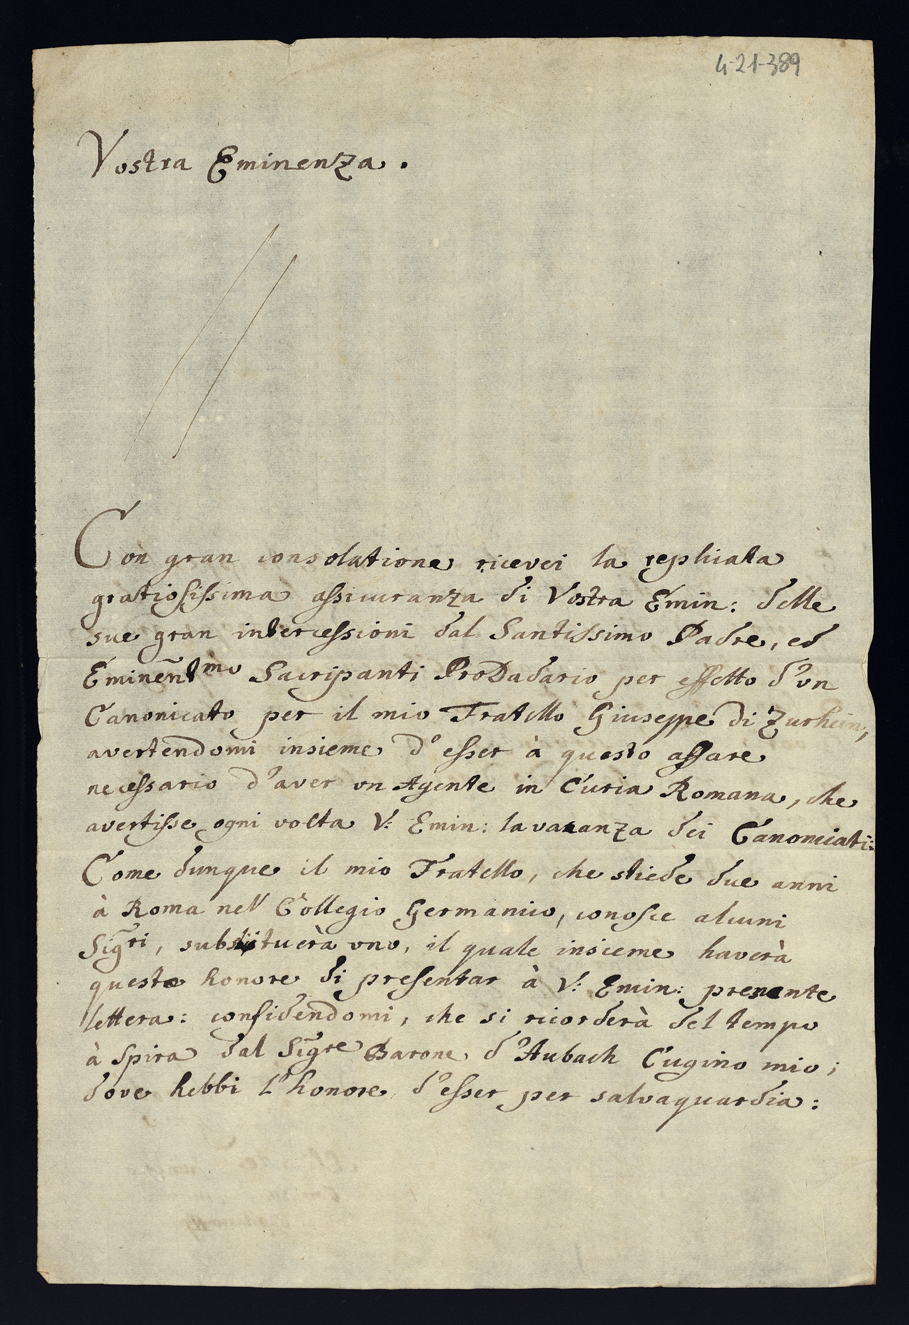 4-21-389
Vostra Eminenza.
Con gran consolatione ricevei la rephiata
gratiosissima assicuranza di Vostra Emin: delle
sue gran intercessioni dal Santissimo Padre, ed
Eminent̃mo Sacripanti ProDadario per effetto d'un
Canonicato per il mio Fratello Giuseppe di Zurhein,
avertendomi insieme d'esser à questo affare
necessario d'aver un Agente in Curia Romana, che
avertisse ogni volta V: Emin: la vacanza dei Canonicati:
Come dunque il mio Fratello, che stiede due anni
à Roma nell Collegio Germanico, conosce alcuni
Sig̃ri, substituerà uno, il quale insieme haverà
questo honore di presentar à V: Emin: presente
lettera: confidendomi, che si ricorderà del tempo
à Spira dal Sig̃re Barone d'Aubach Cugino mio;
dove hebbi l'honore d'esser per salvaguardia: